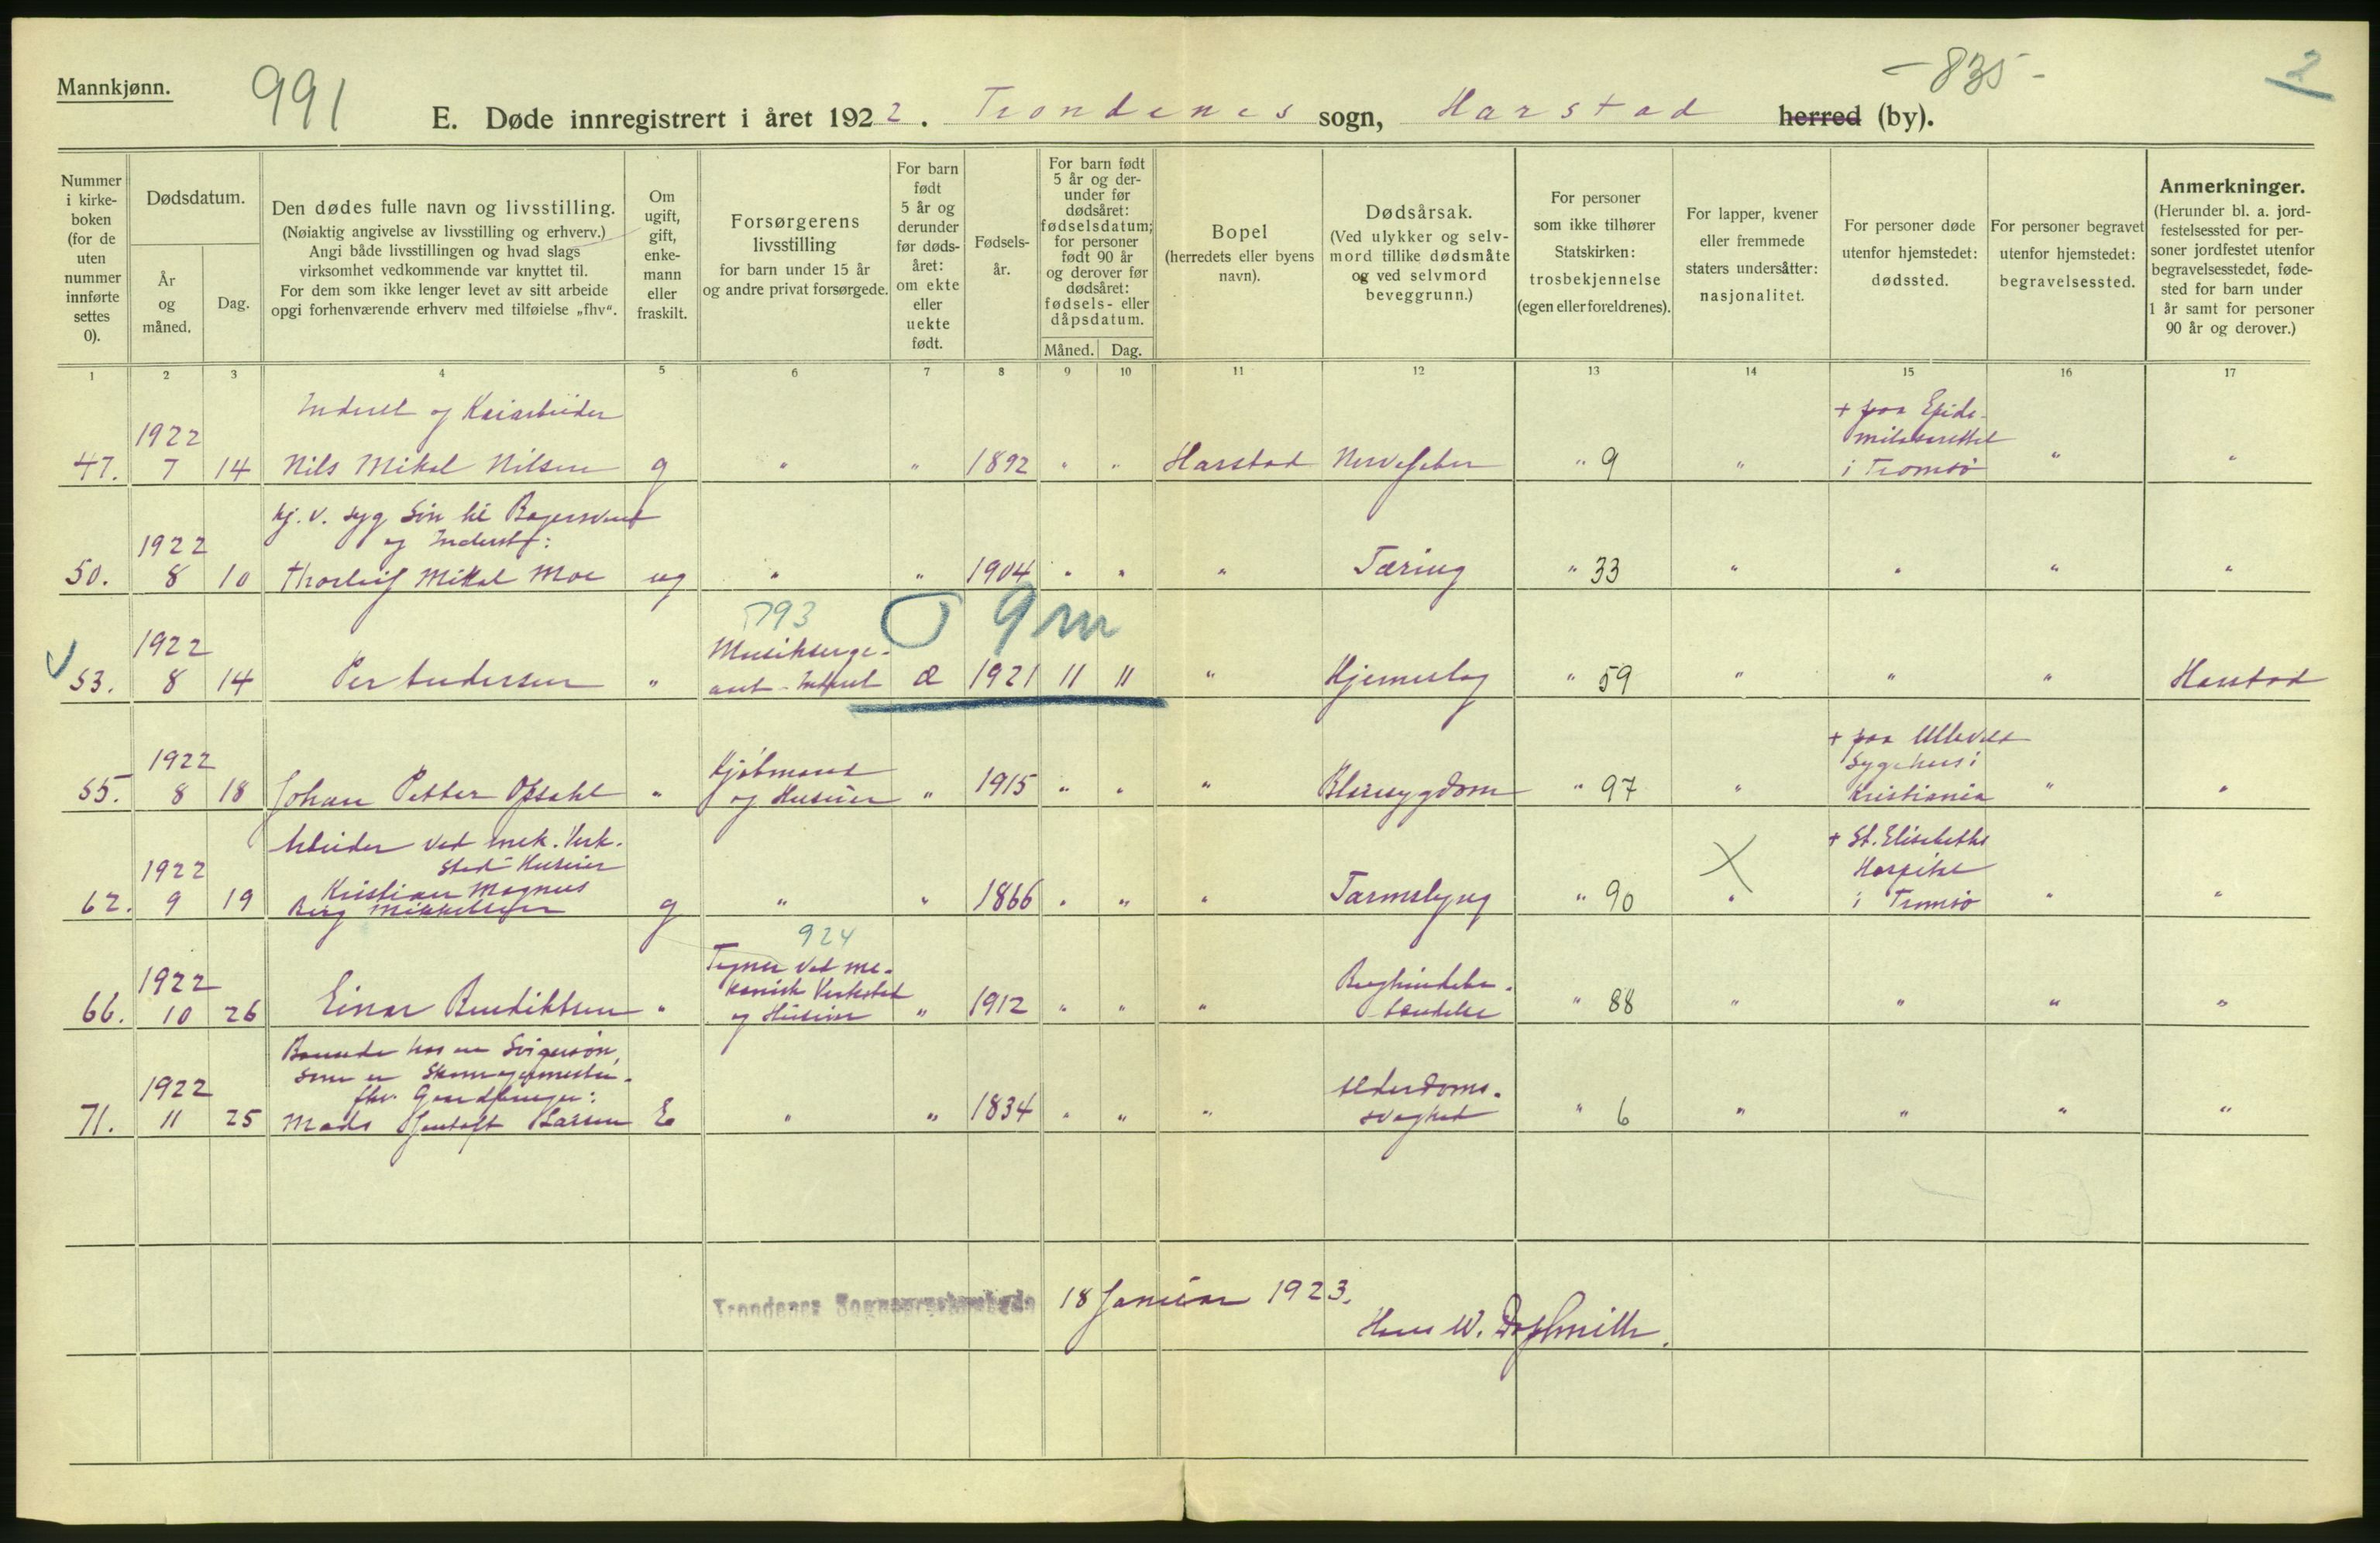 Mannkjønn.
991
- 835 -
2
E. Døde innregistrert i året 1922. Trondenes sogn, Harstad herred (by).
Nummer i kirkeboken (for de uten nummer innførte settes 0).
Dødsdatum.
År og måned.
Dag.
Den dødes fulle navn og livsstilling.
(Nøiaktig angivelse av livsstilling og erhverv.)
Angi både livsstillingen og hvad slags
virksomhet vedkommende var knyttet til.
For dem som ikke lenger levet av sitt arbeide
opgi forhenværende erhverv med tilføielse „fhv“.
Om ugift, gift, enkemann eller fraskilt.
Forsørgerens livsstilling
for barn under 15 år
og andre privat forsørgede.
For barn født 5 år og derunder før dødsåret: om ekte eller uekte født.
Fødselsår.
For barn født 5 år og derunder før dødsåret: fødselsdatum; for personer født 90 år og derover før dødsåret: fødsels- eller dåpsdatum.
Måned. Dag.
Bopel
(herredets eller byens navn).
Dødsårsak.
(Ved ulykker og selvmord tillike dødsmåte og ved selvmord beveggrunn.)
For personer som ikke tilhører Statskirken: trosbekjennelse (egen eller foreldrenes).
For lapper, kvener eller fremmede staters undersåtter: nasjonalitet.
For personer døde utenfor hjemstedet: dødssted.
For personer begravet utenfor hjemstedet: begravelsessted.
Anmerkninger.
(Herunder bl. a. jordfestelsessted for personer jordfestet utenfor begravelsesstedet, fødested for barn under 1 år samt for personer 90 år og derover.)
1 2 3 4 5 6 7 8 9 10 11 12 13 14 15 16 17
Inderst og Kaiarbeider
47. 1922 7 14 Nils Mikal Nilsen g " " 1892 " " Harstad Nervefeber " 9 " + paa Epidemilasarettet i Tromsø " "
hj. v. syg Søn til Bagersvend
og Inderst:
50. 1922 8 10 Thorleif Mikal Moe ug " " 1904 " " " Tæring " 33 " " " "
793
9 m
53. 1922 8 14 Per Andersen " Musikserge-
ant - Inderst Æ 1921 11 11 " Hjerneslag " 59 " " " Harstad
55. 1922 8 18 Johan Petter Opsahl " Kjøbmand
og Huseier " 1915 " " " Blæresygdom " 97 " + paa Ullevål Sygehus i Kristiania " "
Arbeider ved mek. Verk-
sted - Huseier
62. 1922 9 19 Kristian Magnus
Berg Mikkelsen g " " 1866 " " " Tarmslyng " 90 " + St. Elisabeths Hospital i Tromsø " "
924
66. 1922 10 26 Einar Bendiktsen " Tegner ved me-
kanisk Verksted
og Huseier " 1912 " " " Bughindebe-
tændelse " 88 " " " "
Boende hos en Svigersøn,
som er Skomagermester.
fhv. Gaardbruger:
71. 1922 11 25 Mads Larsen E " " 1834 " " " Alderdoms-
svaghed " 6 " " " "
Trondenes Sogneprestembede 18 Januar 1923.
Hans W.